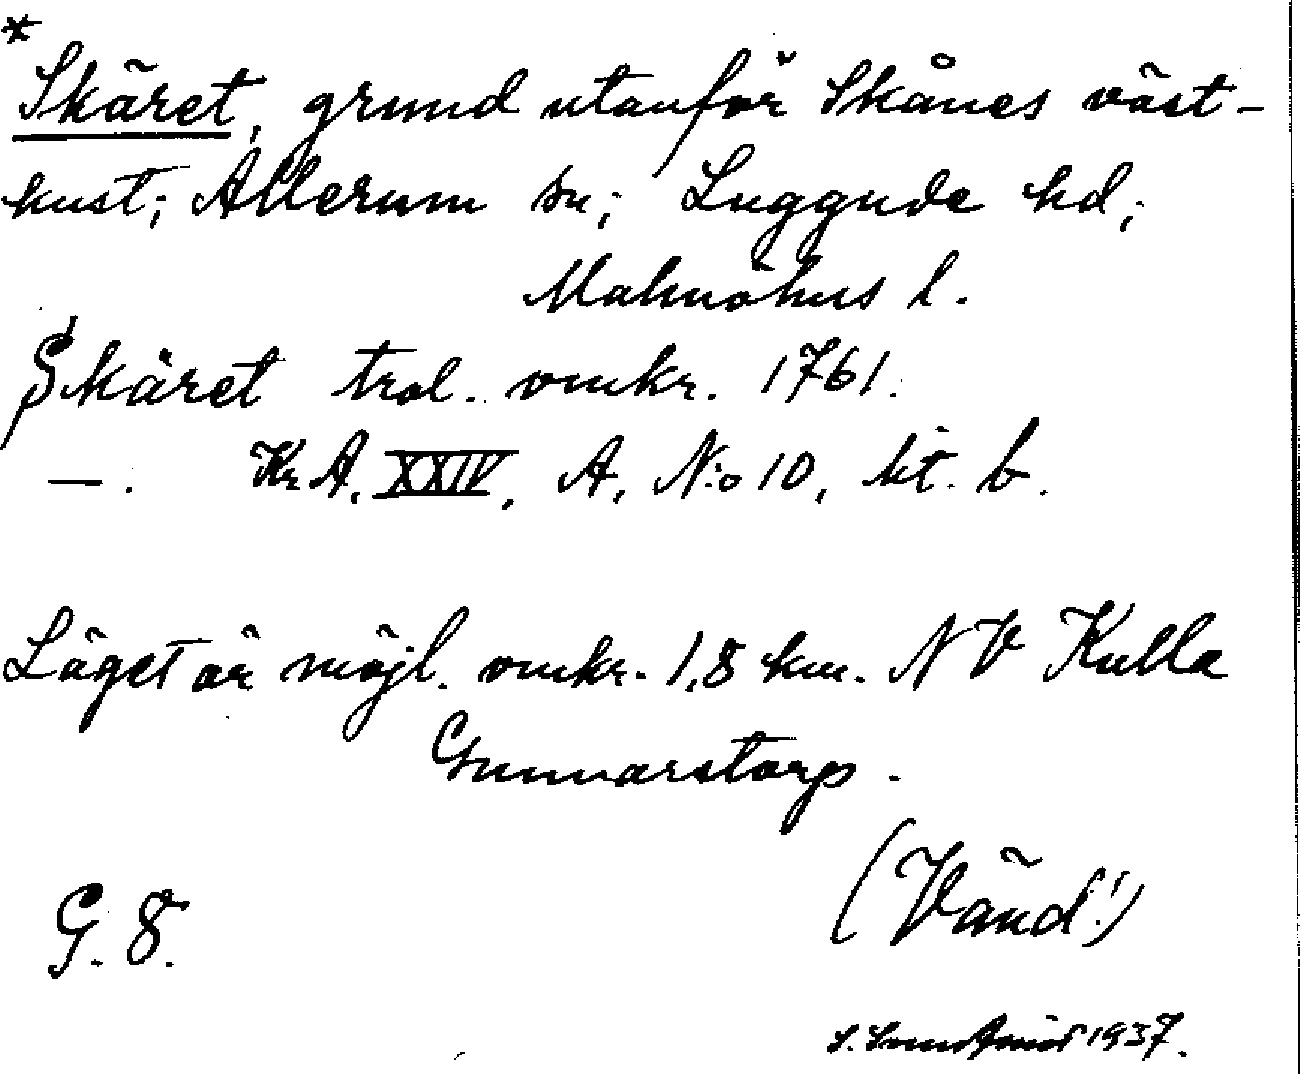 *
Skäret, grund utanför Skånes väst-
kust; Allerum sn; Luggude hd;
Malmöhus l.
Skäret trol. omkr. 1761.
—. Kr. A. XXIV, A, N:o 10, kt. b.
Läget är möjl. omkr. 1,8 km. NV Kulla
Gunnarstorp.
(Vänd!)
G. 8.
S. 1937.